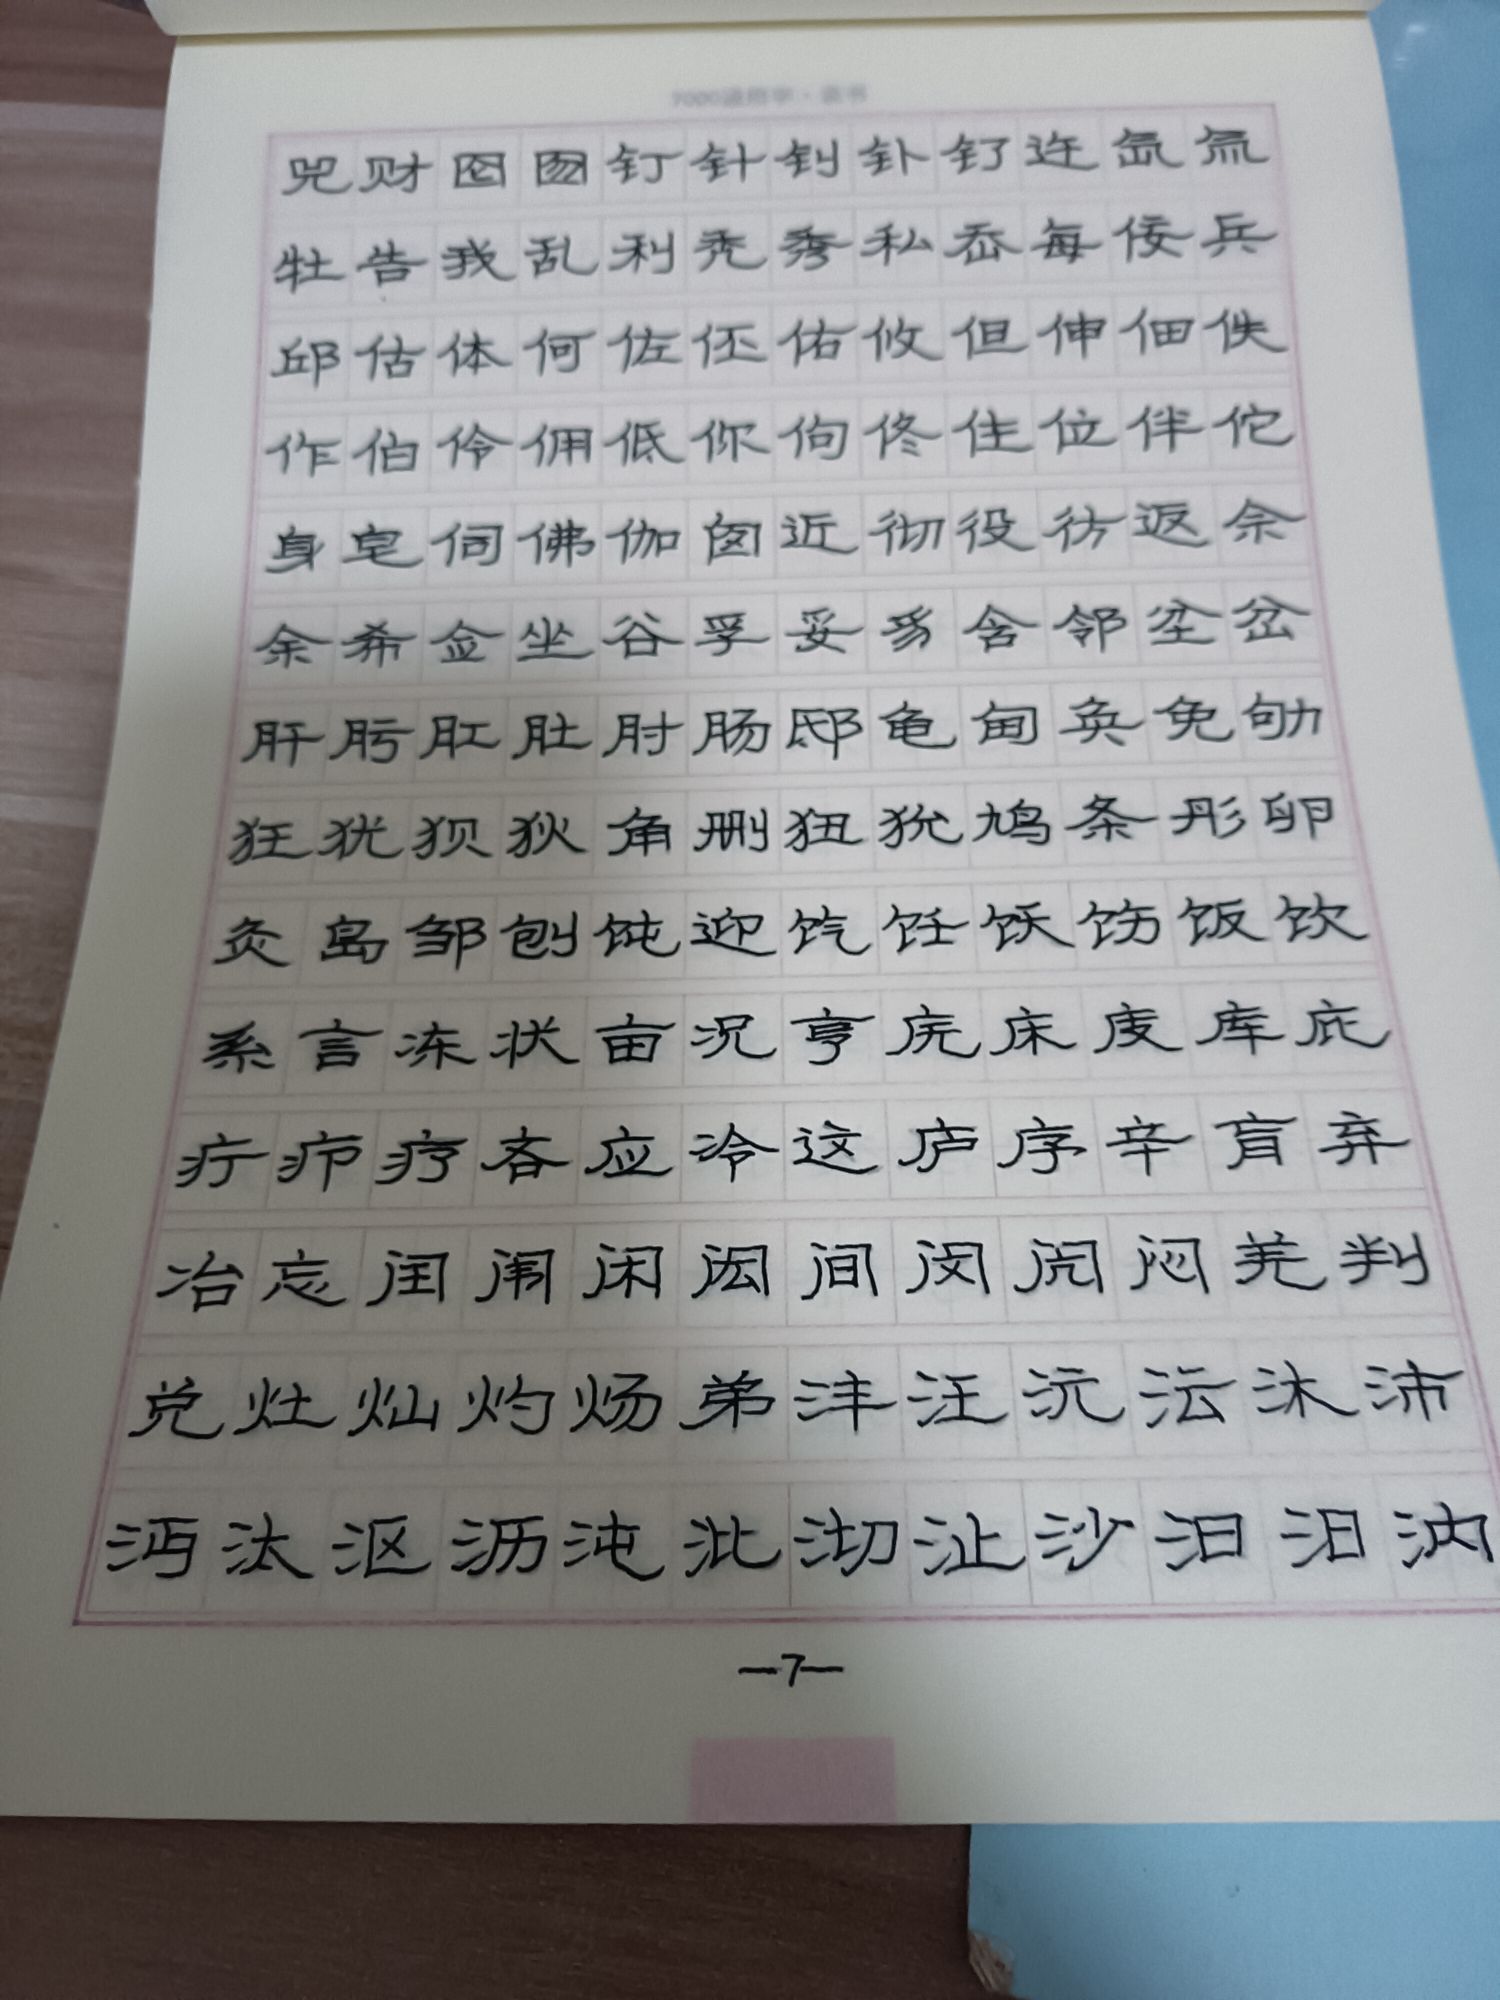 7000通用字·隶书
兕财囵囫钉针钊钋钌迕氙氚
牡告我乱利秃秀私岙每佞兵
邱估体何佐伾佑攸但伸佃佚
作伯伶佣低你佝佟住位伴佗
身皂伺佛伽囱近彻役彷返佘
余希佥坐谷孚妥豸含邻坌岔
肝肟肛肚肘肠邸龟甸奂免劬
狂犹狈狄角删狃狁鸠条彤卵
灸岛邹刨饨迎饩饪饫饬饭饮
系言冻状亩况亨庑床庋库庇
疔疖疗吝应冷这庐序辛肓弃
冶忘闰闱闲闳间闵闶闷羌判
兑灶灿灼炀弟沣汪沅沄沐沛
沔汰沤沥沌沘沏沚沙汩汨汭
—7—